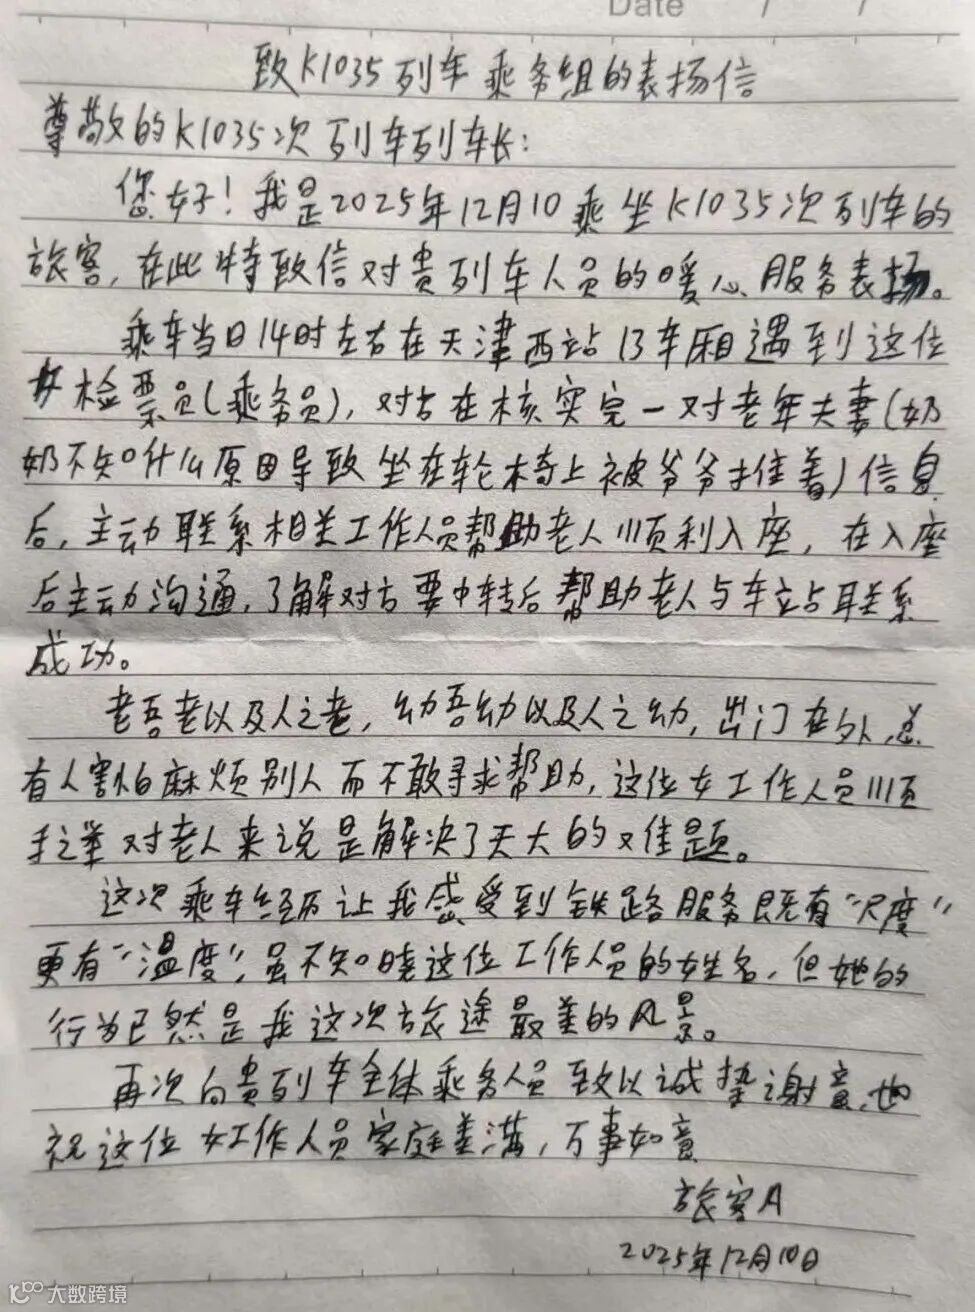 Date / /
致K1035列车乘务组的表扬信
尊敬的K1035次列车列车长:
您好!我是2025年12月10乘坐K1035次列车的
旅客,在此特致信对贵列车人员的暖心服务表扬。
乘车当日14时左右在天津西站13车厢遇到这位
女检票员(乘务员),对方在核实完一对老年夫妻(奶
奶不知什么原因导致坐在轮椅上被爷爷推着)信息
后,主动联系相关工作人员帮助老人顺利入座,在入座
后主动沟通,了解对方要中转后帮助老人与车站联系
成功。
老吾老以及人之老,幼吾幼以及人之幼,出门在外,总
有人害怕麻烦别人而不敢寻求帮助,这位女工作人员顺
手之举对老人来说是解决了天大的难题。
这次乘车经历让我感受到铁路服务既有“尺度”
更有“温度”,虽不知晓这位工作人员的姓名,但她的
行为已然是我这次旅途最美的风景。
再次向贵列车全体乘务人员致以诚挚谢意,也
祝这位女工作人员家庭美满,万事如意
旅客A
2025年12月10日
大数跨境